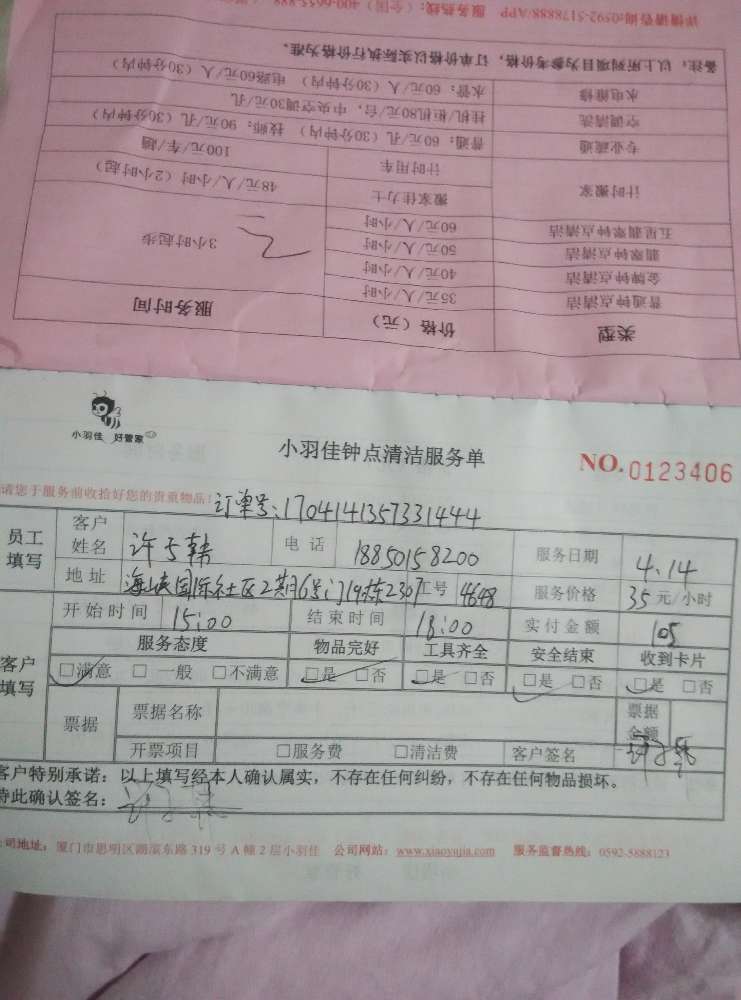 详情请咨询:0592-5178888/APP 服务热线:(全国)400-6655-888
备注:以上所列项目为参考价格,订单价格以实际执行价格为准。
水电维修 水管:60元/人(30分钟内) 电路60元/人(30分钟内)
空调清洗 挂机/柜机80元/台,中央空调30元/孔
专业疏通 普通:60元/孔(30分钟内) 技师:90元/孔(30分钟内)
计时搬家 计时用车 100元/车/趟
搬家佳力士 48元/人/小时(2小时起)
五星翡翠钟点清洁 60元/人/小时
翡翠钟点清洁 50元/人/小时
金牌钟点清洁 40元/人/小时
普通钟点清洁 35元/人/小时
3小时起步
类型 价格(元) 服务时间
小羽佳 好管家
小羽佳钟点清洁服务单
NO.0123406
请您于服务前收拾好您的贵重物品!
订单号:1704141357331444
员工填写 客户姓名 电话 18850158200 服务日期 4.14
地址 海峡国际社区2期6号门19栋2307 工号 4648 服务价格 35元/小时
开始时间 15:00 结束时间 18:00 实付金额 105
客户填写 服务态度 物品完好 工具齐全 安全结束 收到卡片
□满意 □一般 □不满意 □是 □否 □是 □否 □是 □否 □是 □否
票据 票据名称 票据金额
开票项目 □服务费 □清洁费 客户签名
客户特别承诺:以上填写经本人确认属实,不存在任何纠纷,不存在任何物品损坏。
特此确认签名:
公司地址:厦门市思明区湖滨东路319号A幢2层小羽佳 公司网站:www.xiaoyujia.com 服务监督热线:0592-5888123